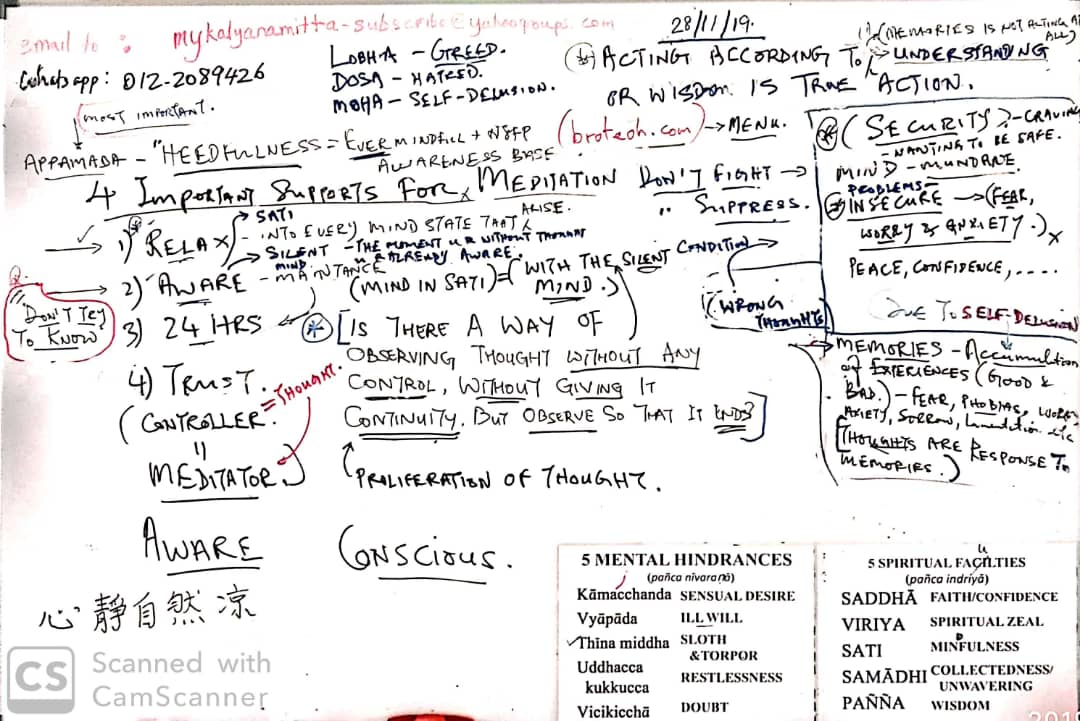 Email to : mykalyanamitta-subscribe@yahoogroups.com
Whatsapp: 012-2089426
LOBHA - GREED.
DOSA - HATRED.
MOHA - SELF-DELUSION.
28/11/19.
(MEMORIES IS NOT ACTING AT ALL)
ACTING ACCORDING TO UNDERSTANDING
OR WISDOM IS TRUE ACTION.
MOST IMPORTANT.
APPAMADA - "HEEDFULNESS = EVER MINDFULL + N8FP
AWARENESS BASE
(broteoh.com) → MENU.
4 IMPORTANT SUPPORTS FOR MEDITATION
DON'T FIGHT →
" SUPPRESS.
1) RELAX
SATI
- INTO EVERY MIND STATE THAT ARISE.
SILENT MIND - THE MOMENT U R WITHOUT THOUGHT
U R ALREADY AWARE.
2) AWARE - MAINTANCE
(MIND IN SATI) = (WITH THE SILENT MIND.)
CONDITION →
"DON'T TRY
TO KNOW
3) 24 HRS
[IS THERE A WAY OF
OBSERVING THOUGHT WITHOUT ANY
CONTROL, WITHOUT GIVING IT
CONTINUITY, BUT OBSERVE SO THAT IT ENDS?]
PROLIFERATION OF THOUGHT.
4) TRUST.
(CONTROLLER = THOUGHT.
=
MEDITATOR)
(WRONG
THOUGHTS)
(SECURITY? - CRAVING
- WANTING TO BE SAFE.
MIND - MUNDANE
PROBLEMS -
INSECURE → (FEAR,
WORRY & ANXIETY.)
PEACE, CONFIDENCE, . . . .
DUE TO SELF-DELUSION
MEMORIES - Accumulation
of EXPERIENCES (GOOD &
BAD.) - FEAR, PHOBIAS, WORRY
ANXIETY, SORROW, Lamentation etc
[THOUGHTS ARE RESPONSE TO
MEMORIES.)
AWARE CONSCIOUS.
心 靜 自 然 涼
5 MENTAL HINDRANCES
(pañca nīvaraṇā)
Kāmacchanda SENSUAL DESIRE
Vyāpāda ILL WILL
Thina middha SLOTH &TORPOR
Uddhacca kukkucca RESTLESSNESS
Vicikicchā DOUBT
5 SPIRITUAL FACILTIES
u
(pañca indriyā)
SADDHĀ FAITH/CONFIDENCE
VIRIYA SPIRITUAL ZEAL
SATI MINFULNESS
D
SAMĀDHI COLLECTEDNESS/ UNWAVERING
PAÑÑA WISDOM
CS Scanned with
CamScanner